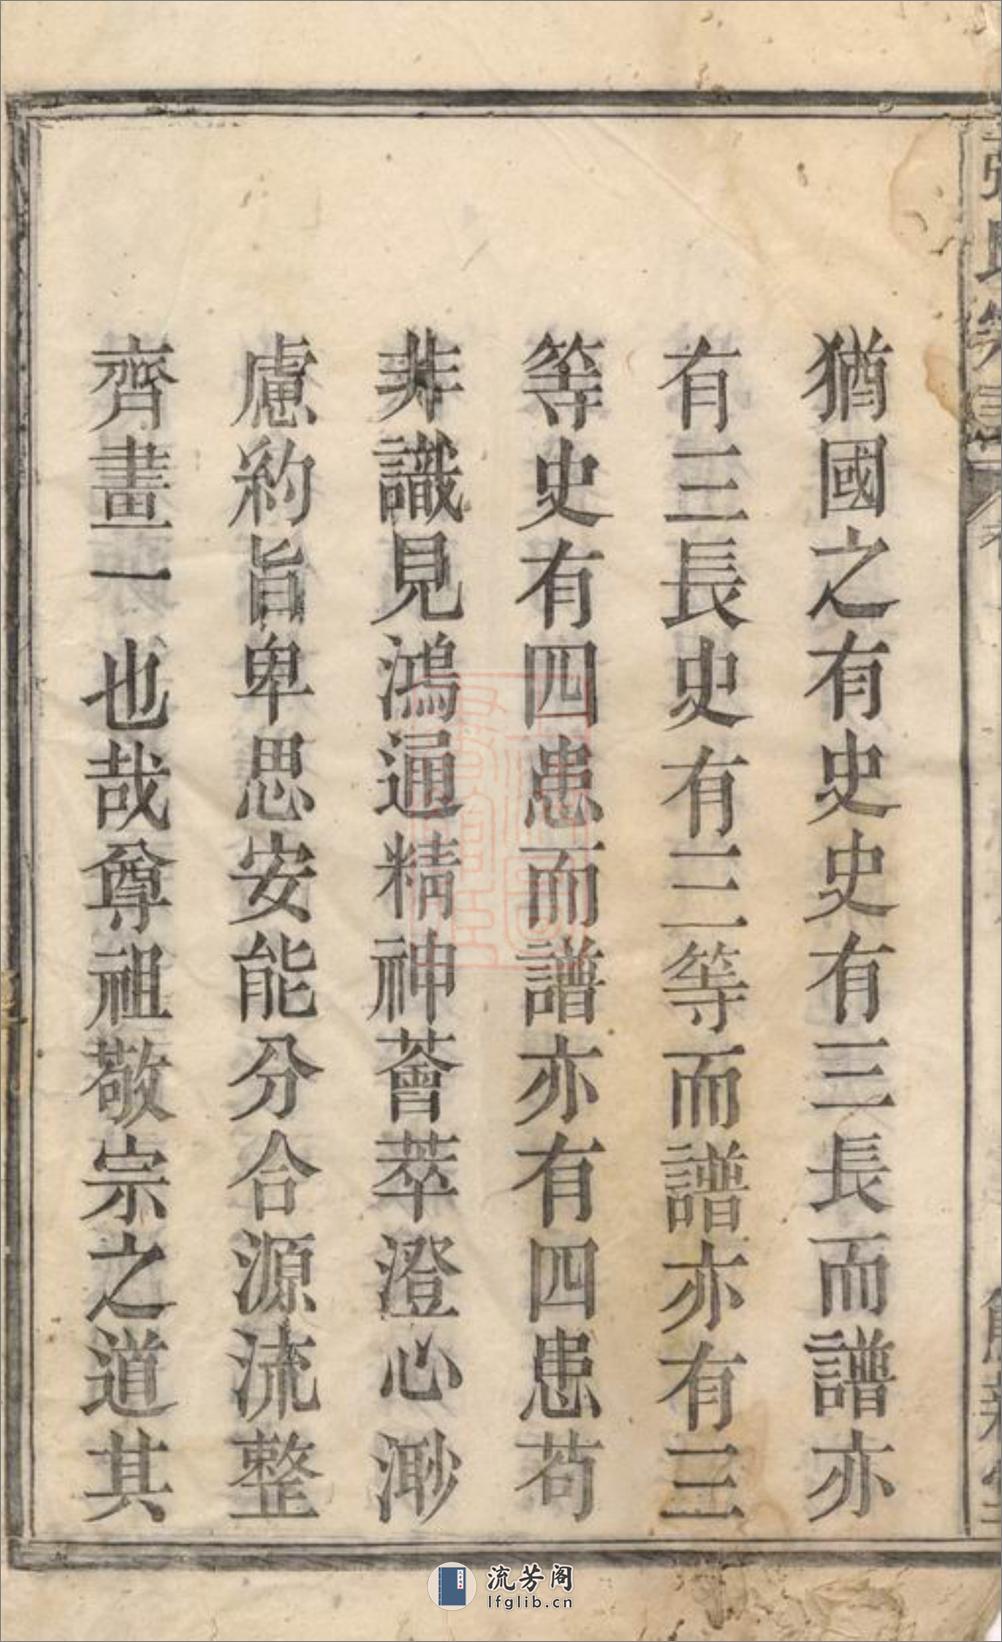 張氏宗譜
猶國之有史史有三長而譜亦
有三長史有三等而譜亦有三
等史有四患而譜亦有四患苟
非識見鴻通精神薈萃澄心渺
慮約旨卑思安能分合源流整
齊畫一也哉尊祖敬宗之道其
流芳阁
lfglib.cn